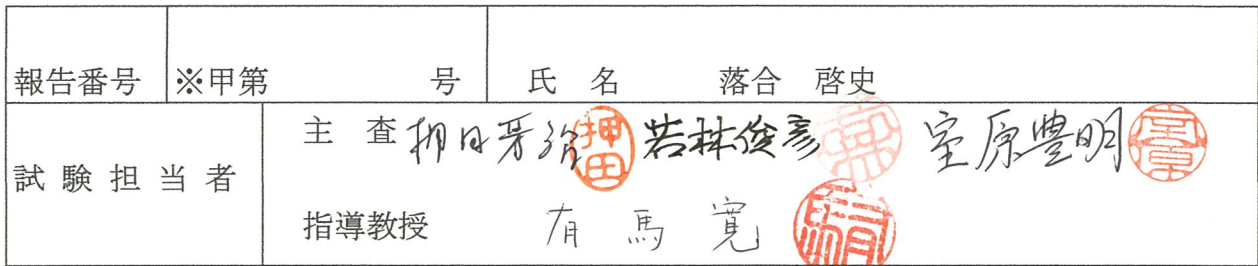 報告番号 ※甲第 号 氏 名 落合 啓史
試験担当者 主 査 押田芳治 若林俊彦 室原豊明
指導教授 有馬寛
押田
室原